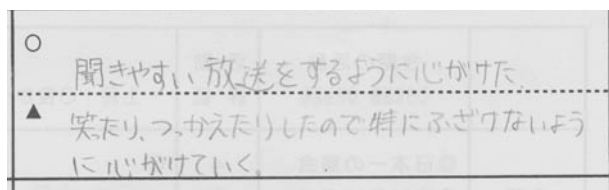 ○
聞きやすい放送をするように心がけた。
▲
笑ったり、つっかえたりしたので特にふざけないよう
に心がけていく。